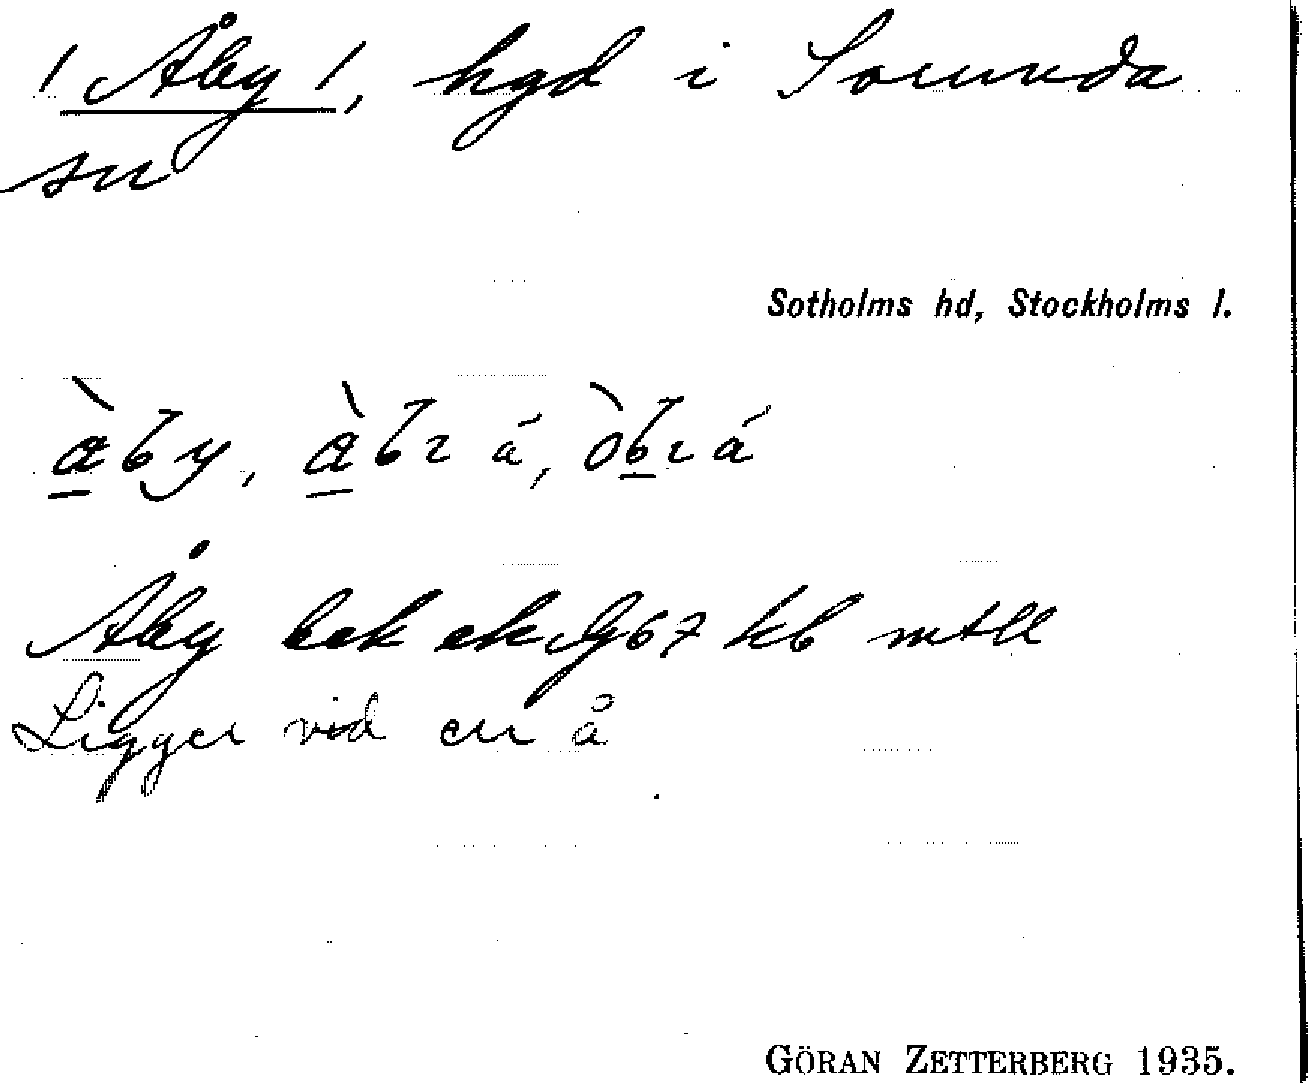 ! Åby !, hgd i Sorunda
sn
Sotholms hd, Stockholms l.
Åby bek ekG67 kb mtll
Ligger vid en å
GÖRAN ZETTERBERG 1935.